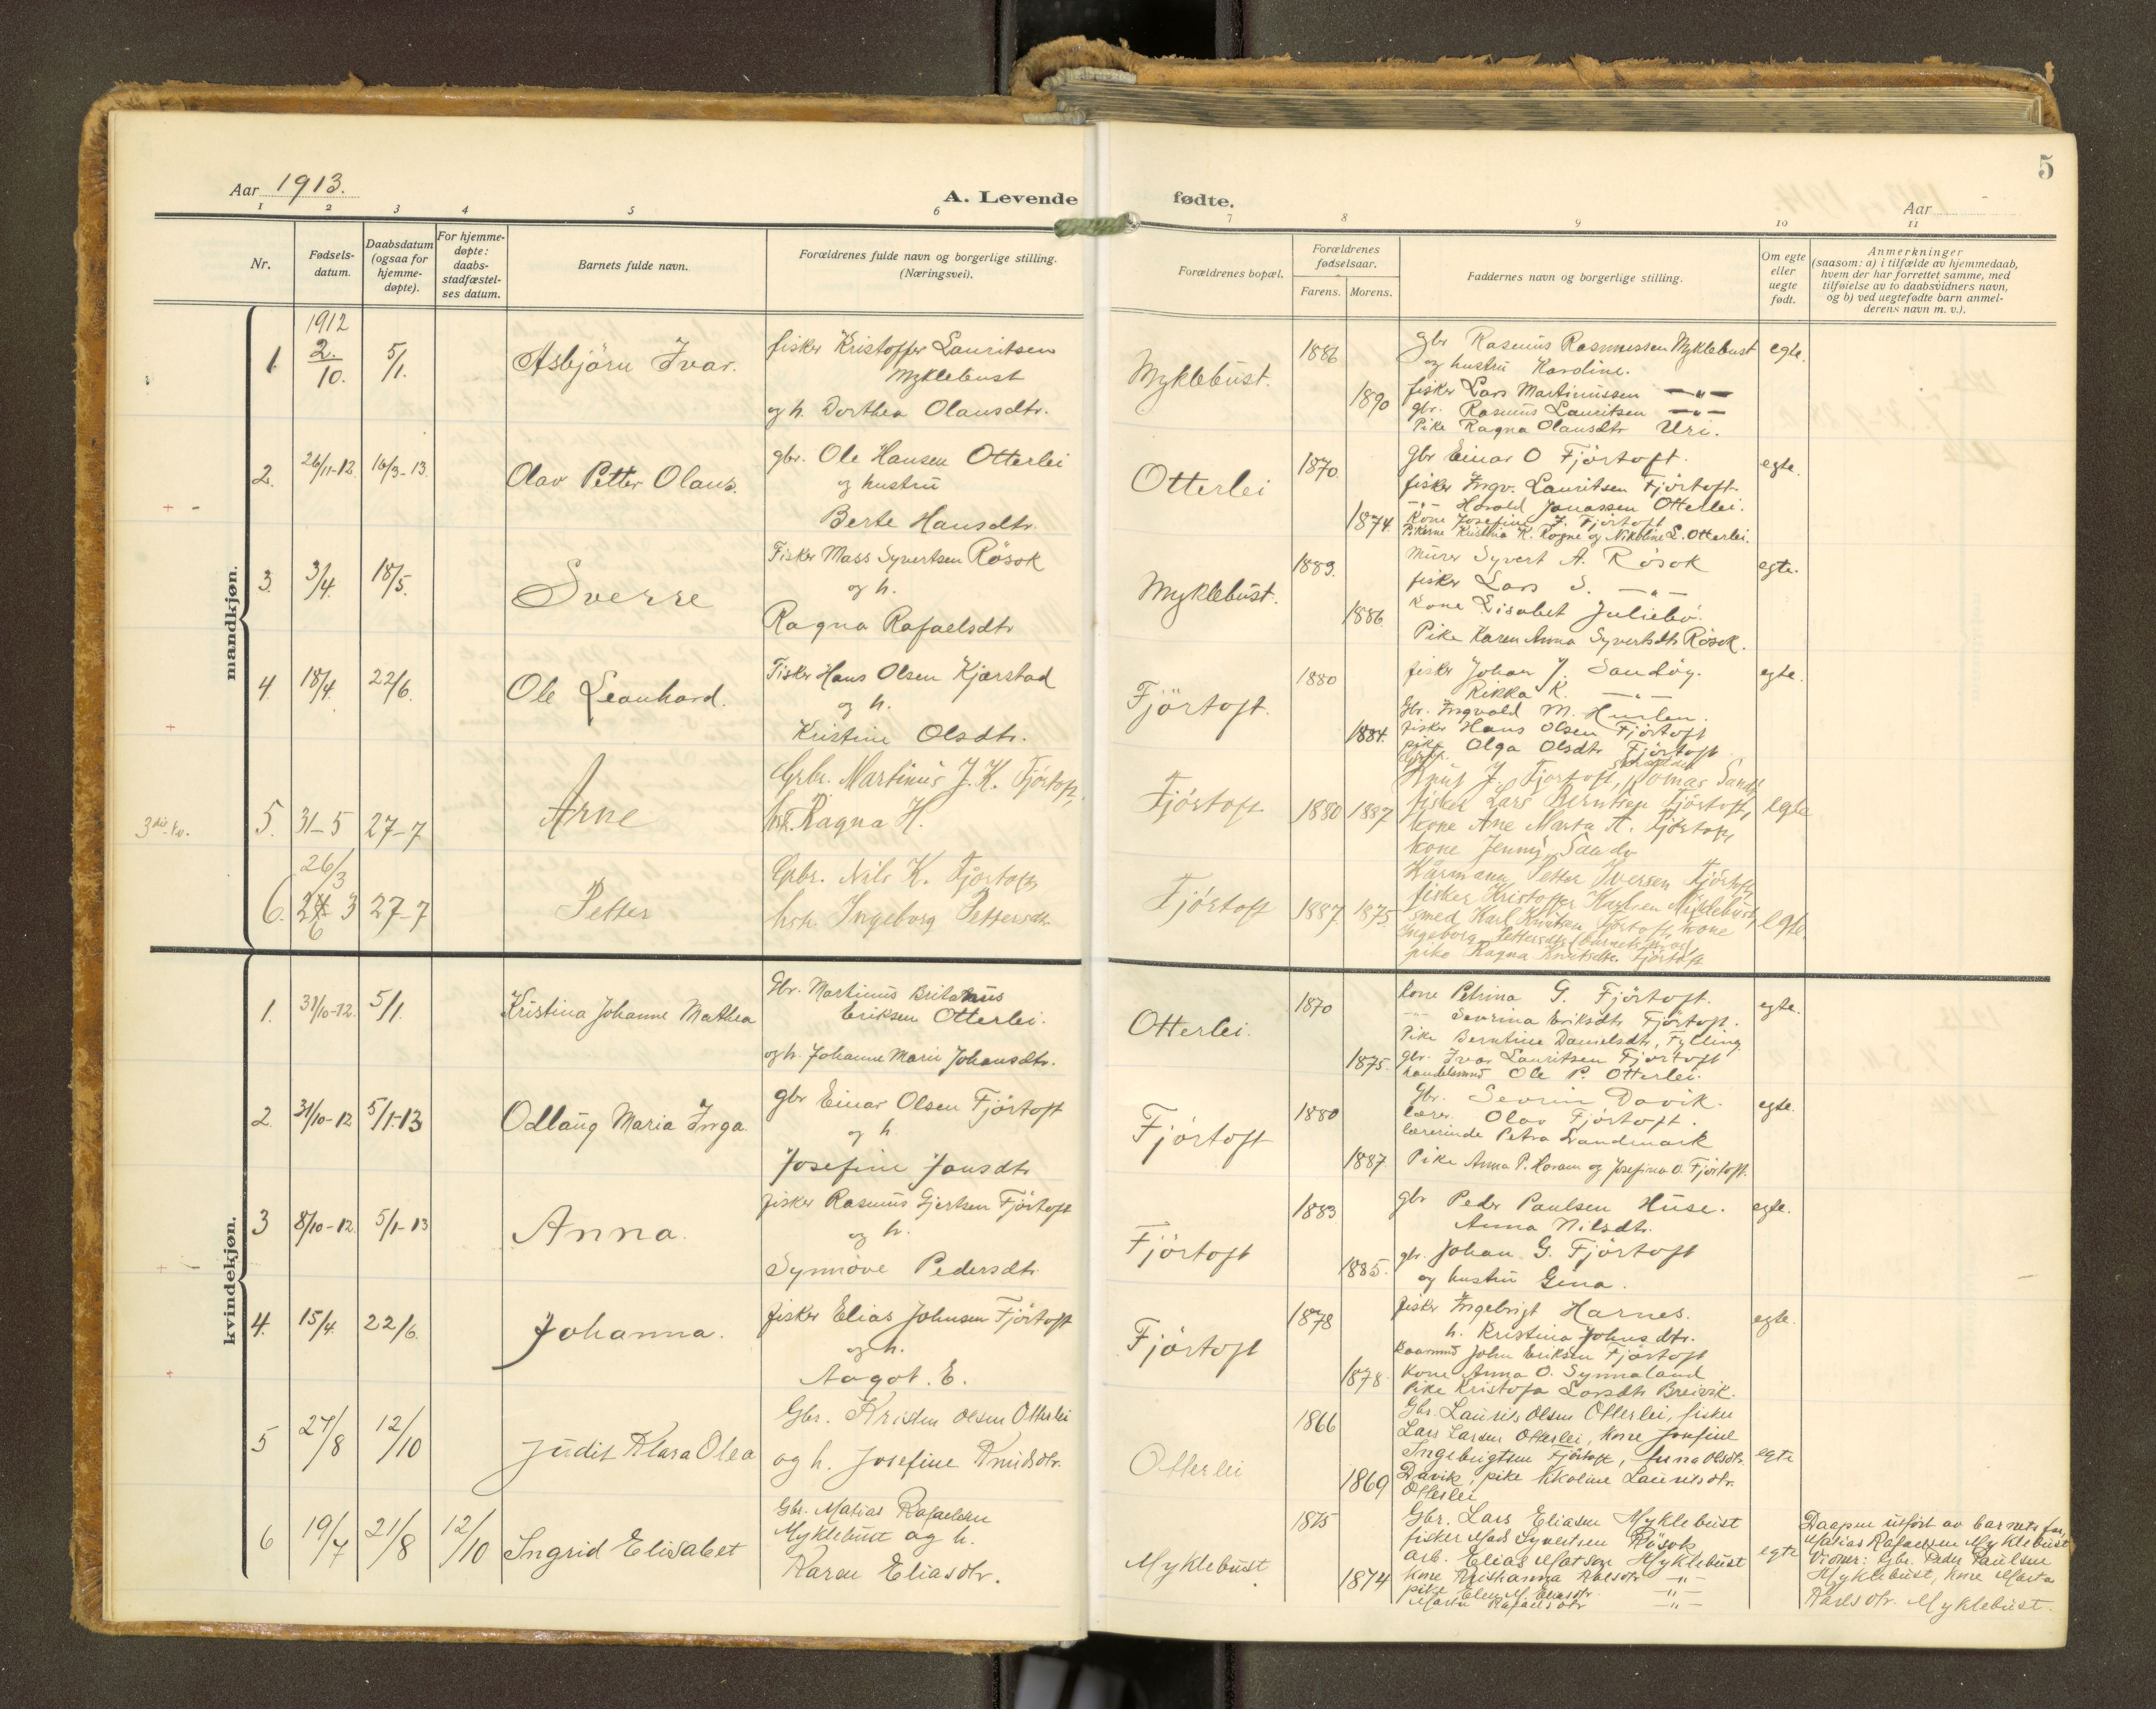 5
Aar 1913.
A. Levende fødte.
Aar
1 2 3 4 5 6 7 8 9 10 11
Nr.
Fødsels-
datum.
Daabsdatum
(ogsaa for
hjemme-
døpte).
For hjemme-
døpte:
daabs-
stadfæstel-
ses datum.
Barnets fulde navn.
Forældrenes fulde navn og borgerlige stilling.
(Næringsvei).
Forældrenes bopæl.
Forældrenes
fødselsaar.
Farens. Morens.
Faddernes navn og borgerlige stilling.
Om egte
eller
uegte
født.
Anmerkninger
(saasom: a) i tilfælde av hjemmedaab,
hvem der har forrettet samme, med
tilføielse av to daabsvidners navn,
og b) ved uegtefødte barn anmel-
derens navn m. v.).
mandkjøn.
1. 1912 2./10. 5/1. Asbjörn Ivar.
fisker Kristoffer Lauritsen
Myklebust
og h. Dorthea Olausdtr.
Myklebust. 1886 1890
gbr Rasmus Rasmussen Myklebust
og hustru Karoline.
fisker Lars Martinussen —"—
gbr. Rasmus Lauritsen —"—
Pike Ragna Olausdtr Uri.
egte.
2. 26/11-12 16/3-13. Olav Petter Olaus.
gbr. Ole Hansen Otterlei
og hustru
Berte Hansdtr.
Otterlei 1870 1874.
gbr Einar O Fjörtoft.
fisker Ingv. Lauritsen Fjörtoft
-"- Harald Jonassen Otterlei.
Kone Josefine J. Fjörtoft
Pikerne Kristina K. Rogne og Nikoline L. Otterlei.
egte.
3. 3/4. 18/5. Sverre
Fisker Mass Syvertsen Rösok
og h.
Ragna Rafaelsdtr
Myklebust. 1883. 1886
Murer Syvert A. Rösok
fisker Lars S. —"—
Kone Lisabet Juliebö.
Pike Karen Anna Syvertsdtr Rösok.
egte.
4. 18/4. 22/6. Ole Leonhard.
Fisker Hans Olsen Kjærstad
og h.
Kristine Olsdtr.
Fjörtoft. 1880 1884.
fisker Johan J. Sandöy.
Rikka K. —"—
Gbr. Ingvald M. Huslen.
fisker Hans Olsen Fjörtoft
pike Olga Olsdtr Fjörtoft
egte.
5. 31-5 27-7 Arne
Grbr. Martinus J. K. Fjörtoft,
hst. Ragna H.
Fjörtoft 1880 1887
Knut J. Fjörtoft,
fisker Lars Berntsen Fjörtoft,
kone Ane Marta A. Fjörtoft,
kone Jenny
egte
6. 26/3 27-7 Petter
Grbr. Nils K. Fjörtoft
hst. Ingeborg Pettersdtr.
Fjörtoft 1887 1875
Kårmann Petter Iversen Fjörtoft,
fisker Kristoffer Karlsen Myklebust,
smed Karl Knutsen Fjörtoft, kone
Ingeborg Pettersdtr (barnets mor)
pike Ragna Knutsdtr. Fjörtoft
egte.
kvindekjøn.
1. 31/10-12. 5/1. Kristina Johanne Mathea
Gbr. Martinus Britanus
Eriksen Otterlei.
og h. Johanne Marie Johansdtr.
Otterlei 1870 1875.
Kone Petrina G. Fjörtoft.
-"- Severina Eriksdtr Fjörtoft.
Pike Berntine Danielsdtr, Fylling
gbr. Ivar Lauritsen Fjörtoft
handelsmnd Ole P. Otterlei.
egte.
2. 31/10-12 5/1-13 Odlaug Maria Inga.
gbr Einar Olsen Fjörtoft
og h.
Josefine Jonsdtr
Fjörtoft 1880 1887
Gbr. Sevrin Davik.
lærer Olav Fjörtoft.
lærerinde Petra Landmark
Pike Anna P. Haram og Josefina O. Fjörtoft.
egte.
3 8/10-12. 5/1-13 Anna.
fisker Rasmus Gjertsen Fjörtoft
og h.
Synnöve Pedersdtr
Fjörtoft 1883 1885.
gbr Peder Paulsen Huse.
Anna Nilsdtr.
gbr. Johan G. Fjörtoft
og hustru Gina.
egte.
4. 15/4. 22/6. Johanna.
fisker Elias Johnsen Fjörtoft
og h.
Aagot. E.
Fjörtoft 1878 1878.
fisker Ingebrigt Harnes.
h. Kristina Johnsdtr.
Kaarmnd John Eriksen Fjörtoft
Kone Anna O. Synnaland
Pike Kristofa Larsdtr Breivik.
egte.
5 27/8 12/10 Judit Klara Olea
Gbr. Kristen Olsen Otterlei
og h. Josefine Knudsdtr.
Otterlei 1866 1869
Gbr. Laurits Olsen Otterlei, fisker
Lars Larsen Otterlei, kone Josefine
Ingebrigtsen Fjörtoft, Anna Olsdtr.
Davik, pike Nikoline Lauritsdtr.
Otterlei
egte
6 19/7 21/8 12/10 Ingrid Elisabet
Gbr. Matias Rafaelsen
Myklebust og h.
Karen Eliasdtr.
Myklebust 1875 1874
Gbr. Lars Eliasen Myklebust
fisker Mads Syvertsen Rösok
arb. Elias Matsen Myklebust
kone Kristianna Abelsdtr —"—
pike Elen M. Eliasdtr —"—
Marta Rafaelsdtr —"—
egte
Daapen utført av barnets far,
Matias Rafaelsen Myklebust
Vidner: Gbr. Peder Paulsen
Myklebust, kone Marta
Karlsdtr. Myklebust.